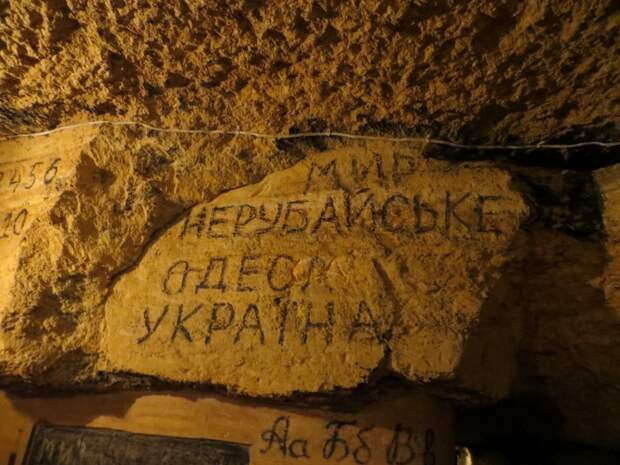 МИР
НЕРУБАЙСЬКЕ
ОДЕСА
УКРАЇНА
456
20
Аа Бб Вв